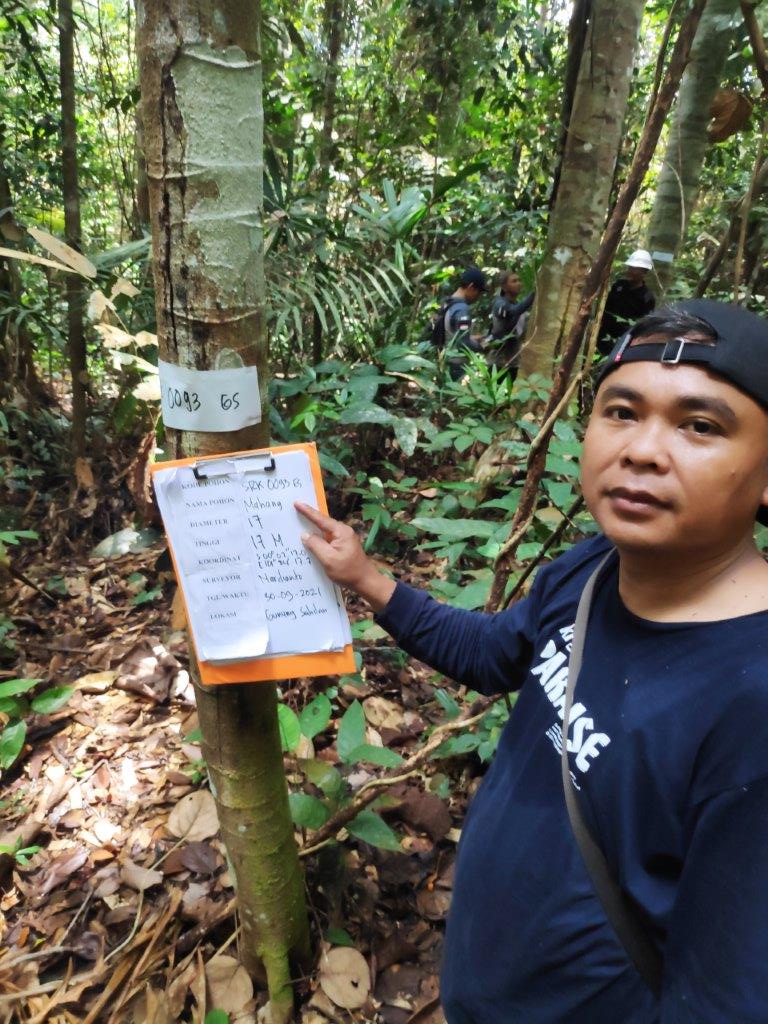 0093 GS
KODE POHON SRK 0093 B
NAMA POHON Mahang
DIAMETER 17
TINGGI 17 M
KOORDINAT
SURVEYOR Mardianto
TGL/WAKTU 30-09-2021
LOKASI Gunung Sahilan